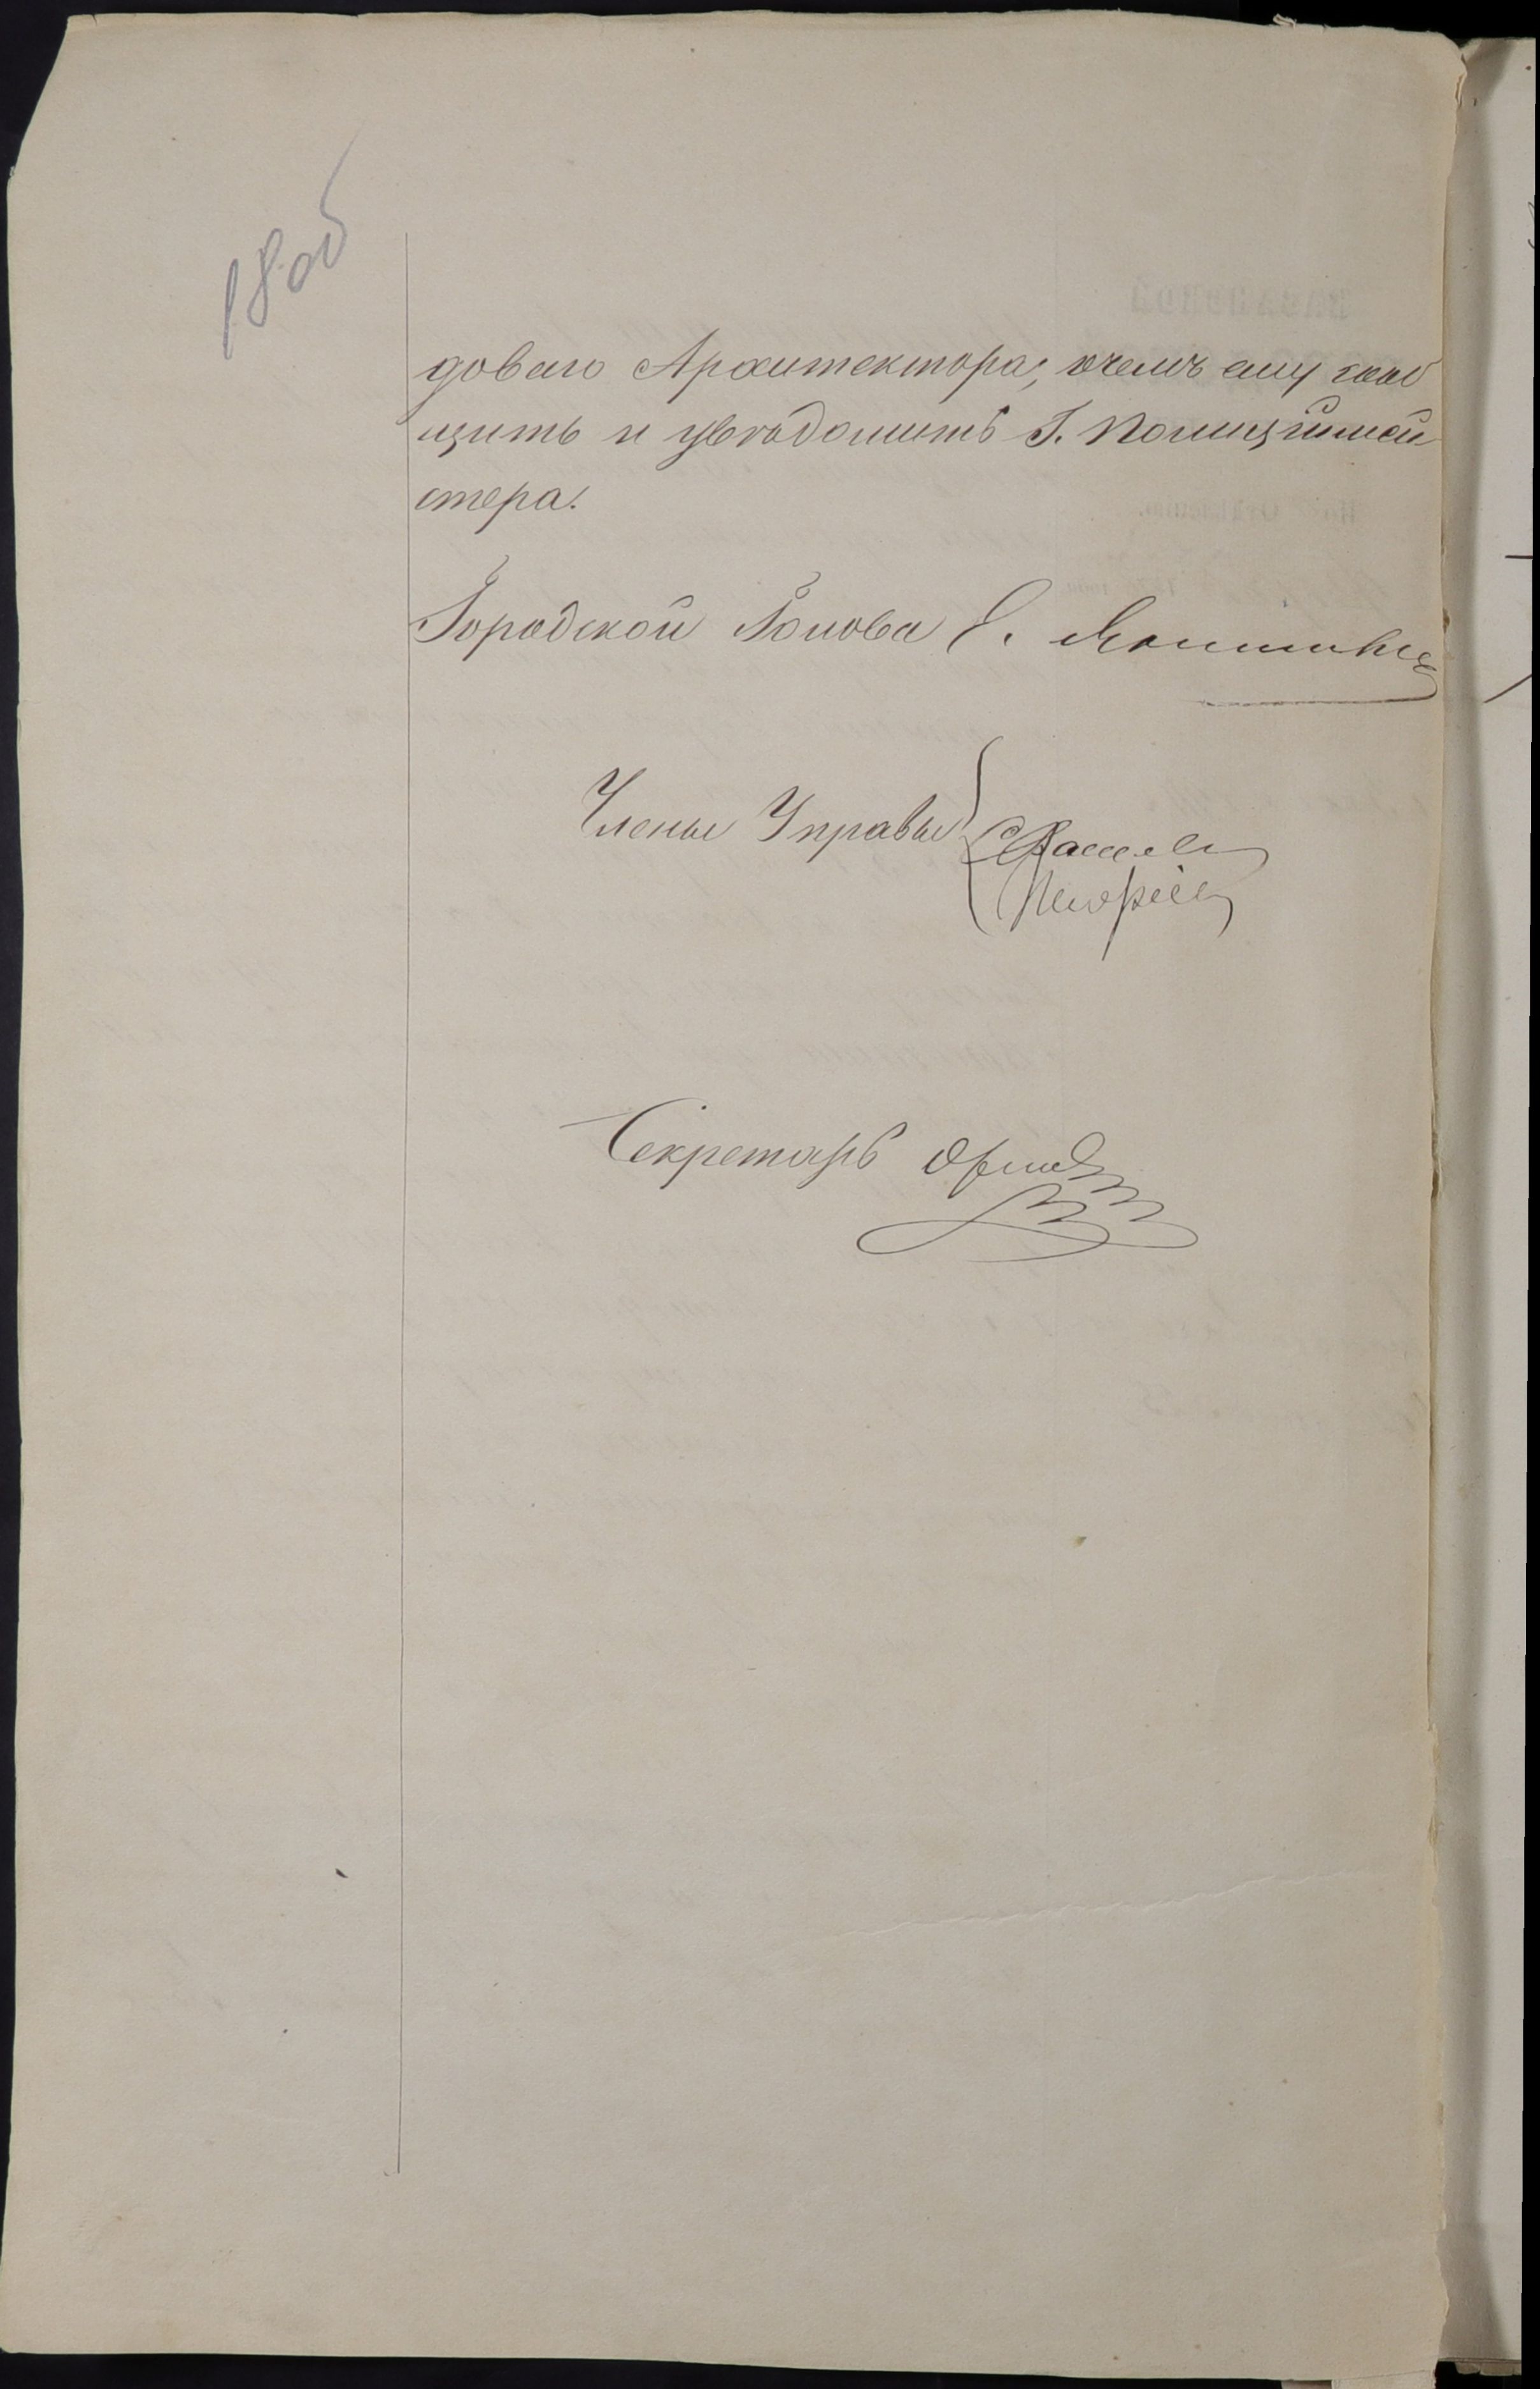 18 об
доваго Архитектора, о чемъ ему сооб
щить и увѣдомить Г. Полиціймей
стера.
Городской Голова
Члены Управы
Секретарь